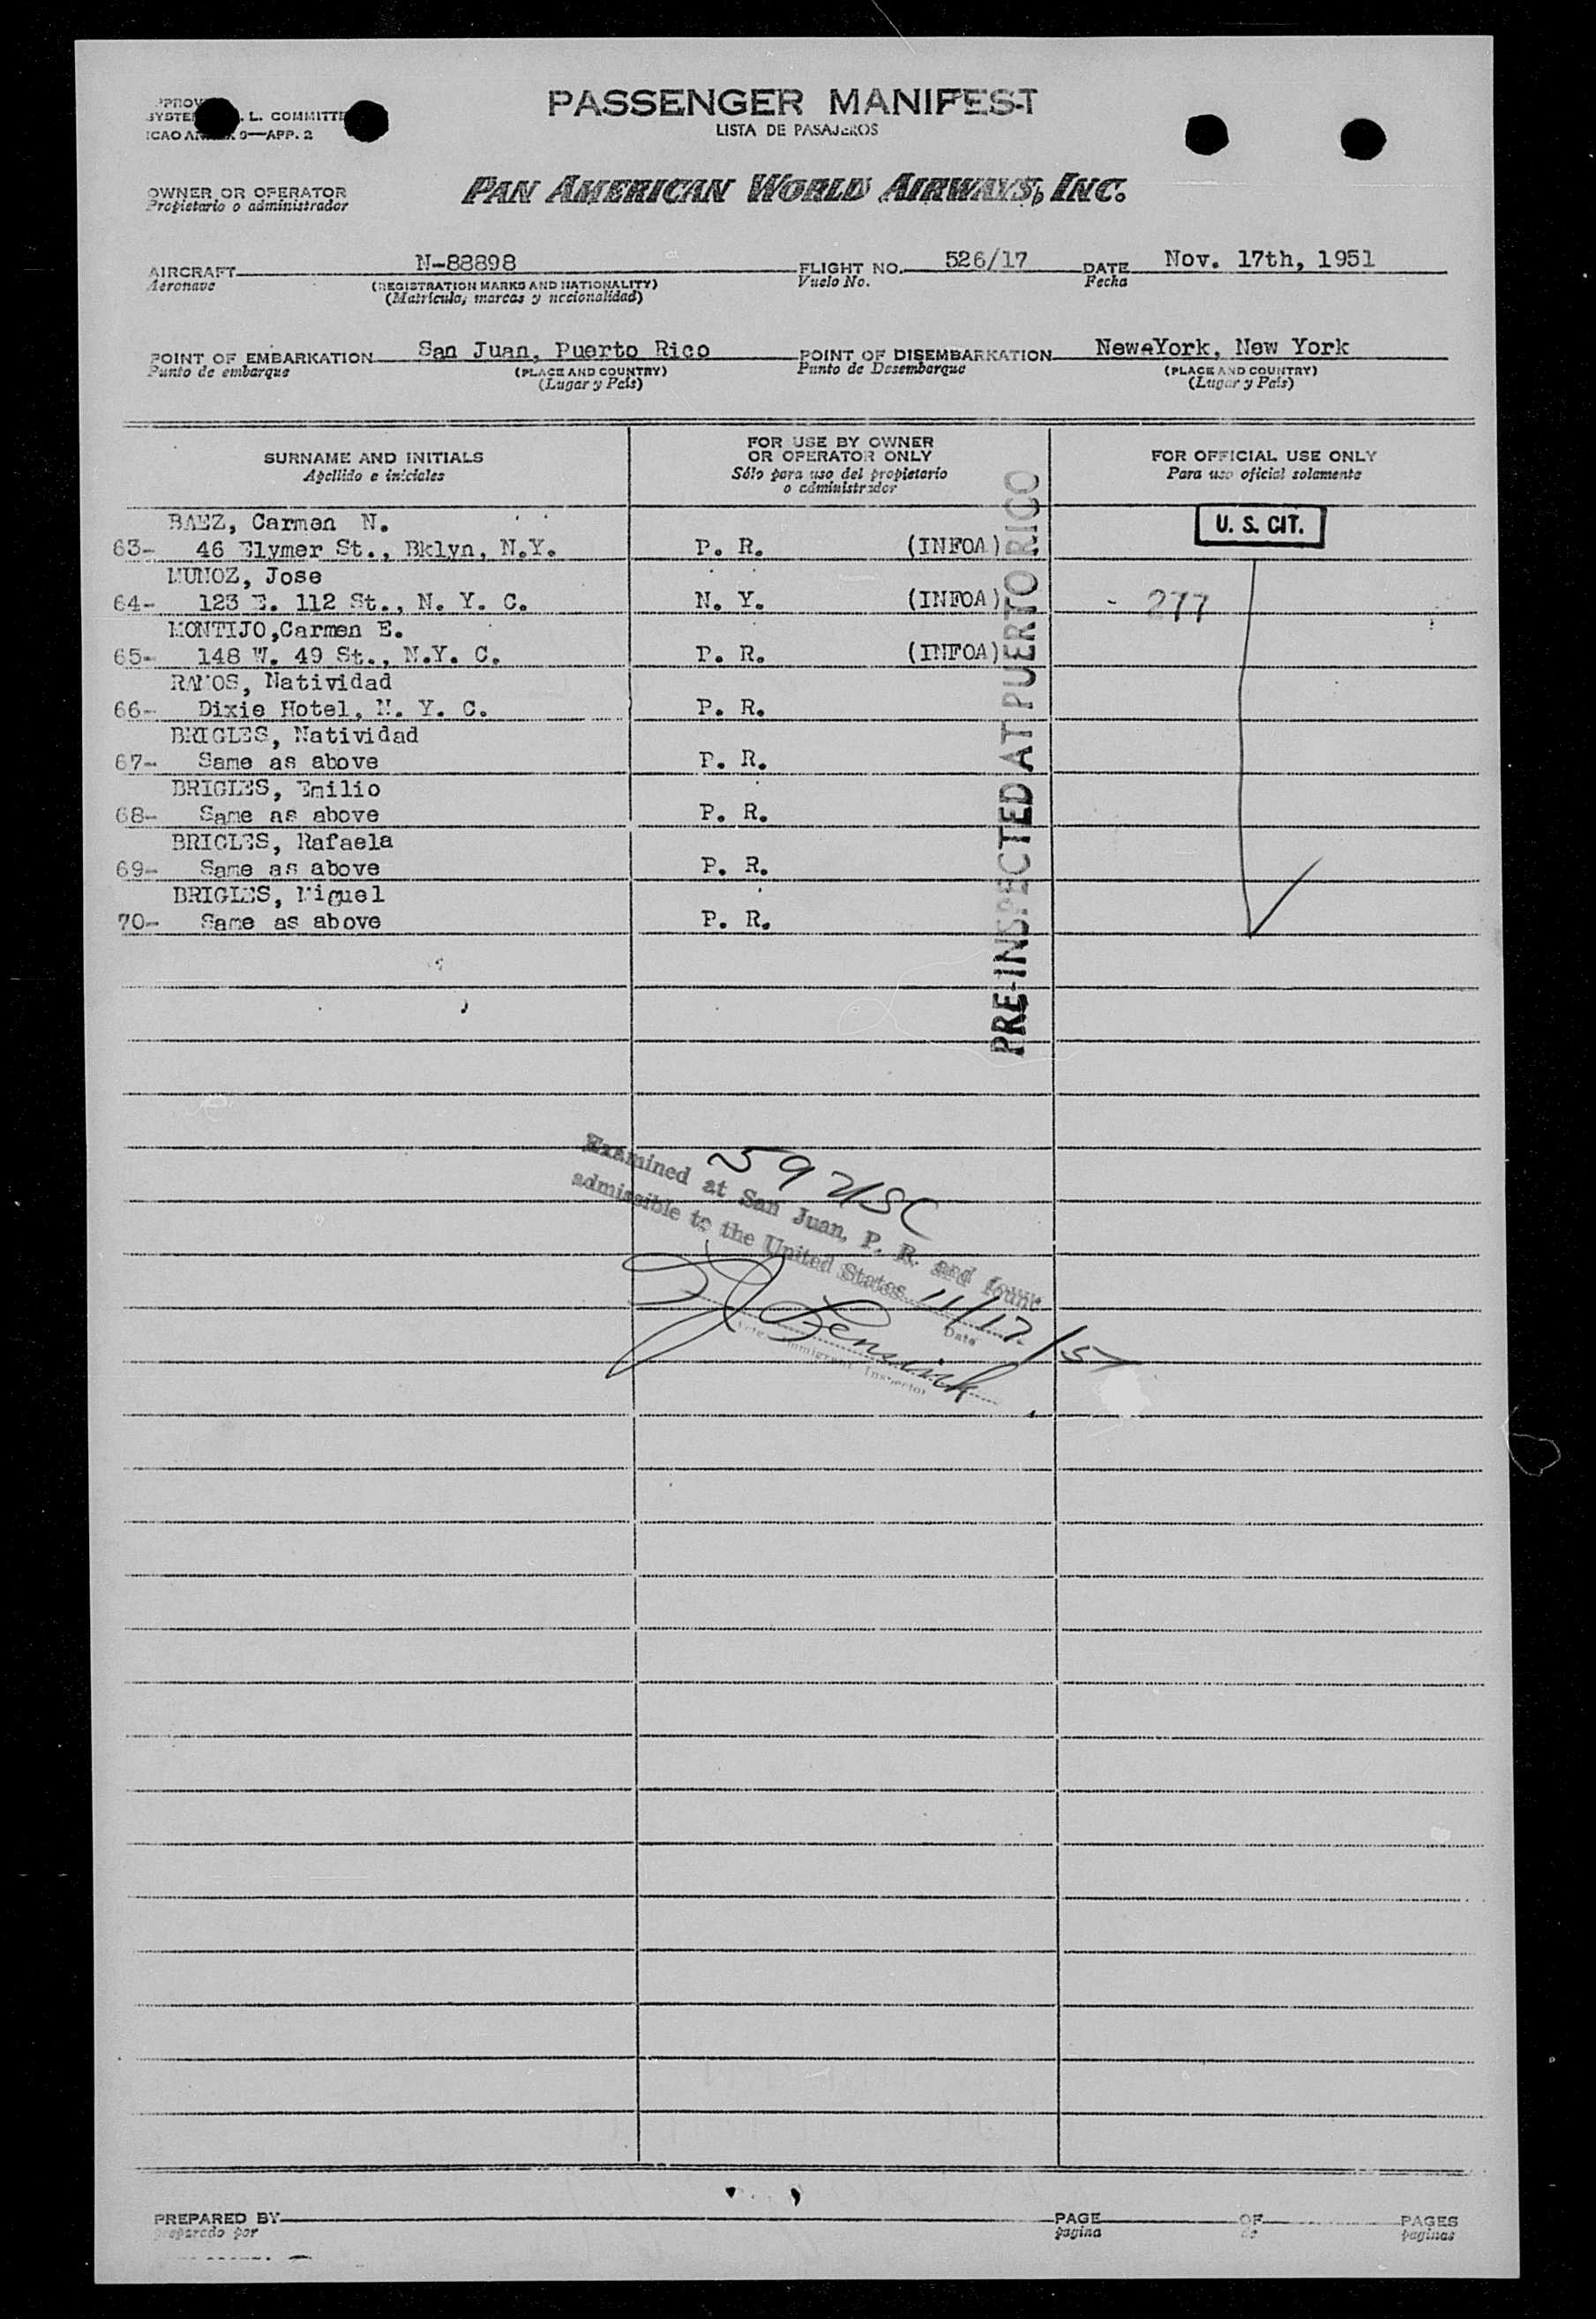 PASSENGER MANIFEST
LISTA DE PASAJEROS
L. COMMITTE
ICAO 9—APP. 2
OWNER OR OPERATOR
Propietario o administrador
PAN AMERICAN WORLD AIRWAYS, INC.
AIRCRAFT N-88898 FLIGHT NO. 526/17 DATE Nov. 17th, 1951
Aeronave (REGISTRATION MARKS AND NATIONALITY) Vuelo No. Fecha
(Matrícula, marcas y nacionalidad)
POINT OF EMBARKATION San Juan, Puerto Rico POINT OF DISEMBARKATION New York, New York
Punto de embarque (PLACE AND COUNTRY) Punto de Desembarque (PLACE AND COUNTRY)
(Lugar y País) (Lugar y País)
SURNAME AND INITIALS
Apellido e iniciales
FOR USE BY OWNER
OR OPERATOR ONLY
Sólo para uso del propietario
o administrador
FOR OFFICIAL USE ONLY
Para uso oficial solamente
BAEZ, Carmen N. U. S. CIT.
63- 46 Clymer St., Bklyn, N.Y. P. R. (INFOA)
MUNOZ, Jose
64- 123 E. 112 St., N. Y. C. N. Y. (INFOA) - 277
MONTIJO,Carmen E.
65- 148 W. 49 St., N.Y. C. P. R. (INFOA)
RAMOS, Natividad
66- Dixie Hotel, N. Y. C. P. R.
BRIGLES, Natividad
67- Same as above P. R.
BRIGLES, Emilio
68- Same as above P. R.
BRIGLES, Rafaela
69- Same as above P. R.
BRIGLES, Miguel
70- Same as above P. R.
PRE-INSPECTED AT PUERTO RICO
59 USC
Examined at San Juan, P. R. and found
admissible to the United States 11/17/51
Date
Immigrant Inspector
PREPARED BY PAGE OF PAGES
preparado por pagina de paginas